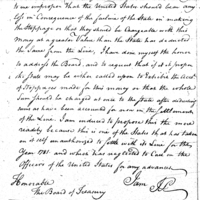 to me improper that the United States should bear any
loss in Consequence of the failure of the State in making
the Stoppage or that they should be chargeable with this
Money at a greater Value than the State has accounted
the same from the Line, I have done myself the honor
to address the Board, and to request that if it is proper
the State may be either called upon to Exhibit the Acct.
of Stoppages made for this money or that the whole
Sum should be charged at once to the State after deducting
such as have been accounted for even in the settlement
of the Line. I am induced to propose this the more
readily because this is one of the States that has taken
on itself unauthorized to settle with its Line for the
Year 1781 and which has neglected to Call on the
Officers of the United States for any advances
Honorable
The Board of Treasury
I am